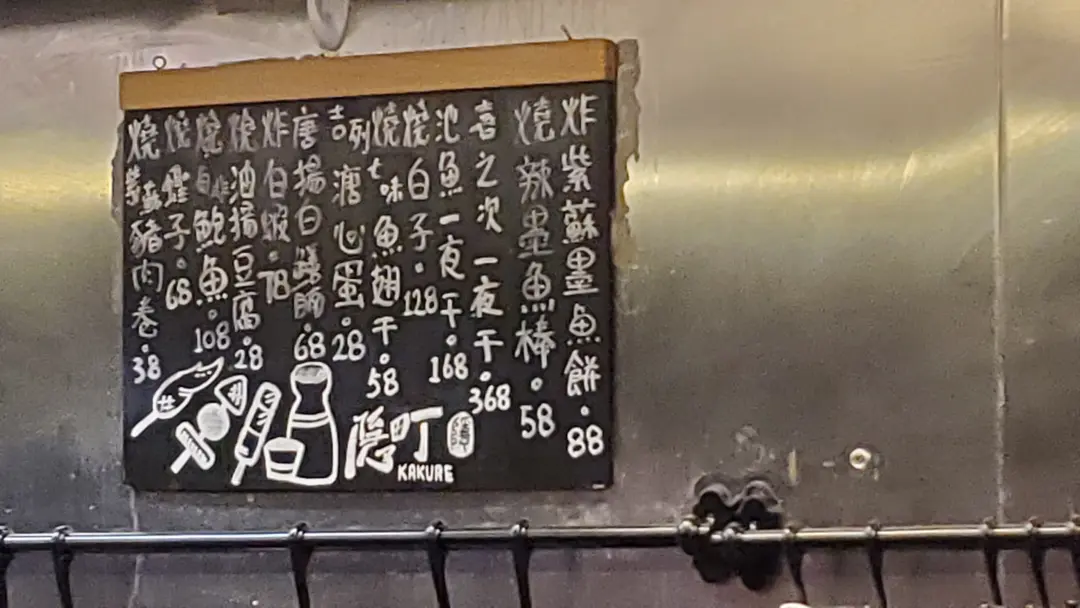 炸紫蘇墨魚餅・88
燒辣墨魚棒・58
喜之次一夜干・368
池魚一夜干・168
燒白子・128
燒七味魚翅干・58
吉列溏心蛋・28
唐揚白鱔・68
炸白蝦・78
燒油揚豆腐・28
燒鮑魚・108
燒蟶子・68
燒紫蘇豬肉卷・38
隠町
KAKURE